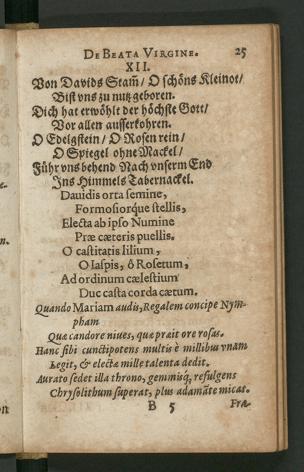 DE BEATA VIRGINE. 25
XII.
Von Davids Stam̃/ O schöns Kleinot/
Bist vns zu nutz geboren.
Dich hat erwöhlt der höchste Gott/
Vor allen ausserkohren.
O Edelgstein/ O Rosen rein/
O Spiegel ohne Mackel/
Führ vns behend Nach vnserm End
Ins Himmels Tabernackel.
Dauidis orta semine,
Formosiorque stellis,
Electa ab ipso Numine
Præ cæteris puellis.
O castitatis lilium,
O Iaspis, ô Rosetum,
Ad ordinum cælestium
Duc casta corda cætum.
Quando Mariam audis, Regalem concipe Nym-
pham
Quæ candore niues, quæ præit ore rosas.
Hanc sibi cunctipotens multis è millibus vnam
Legit, & electæ mille talenta dedit.
Aurato sedet illa throno, gemmisq́; refulgens
Chrysolithum superat, plus adamãte micat.
B 5 Fræ-